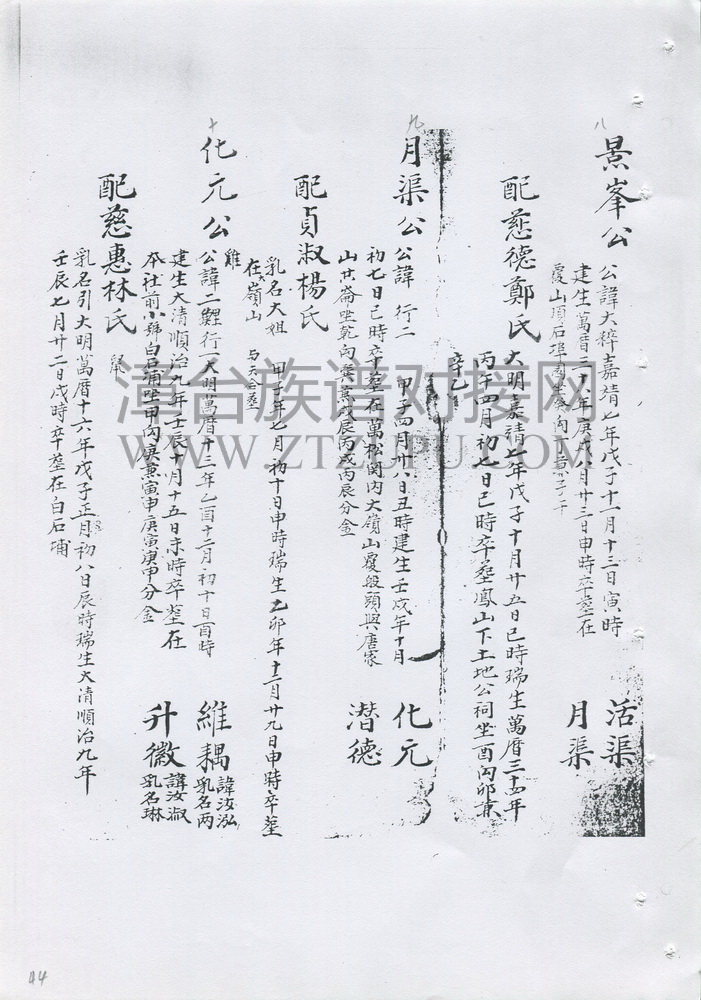 八
景峯公
公諱大粹嘉靖七年戊子十一月十三日寅時
建生萬曆三十八年庚戌八月廿三日申時卒塟在
覆山頂石埠
活渠
月渠
配慈德鄭氏
大明嘉靖七年戊子十月廿五日巳時瑞生萬曆三十四年
丙午四月初七日巳時卒塟鳳山下土地公祠坐酉向卯兼
辛乙
九
月渠公
公諱 行二 甲子四月廿八日丑時建生壬戌年十月
初七日巳時卒塟在萬松関内大嶺山覆船頭與唐家
山廿崙坐乾向巽兼戌辰丙戌丙辰分金
化元
潜德
配貞淑楊氏
乳名大姐 甲子年七月初十日申時瑞生乙卯年十二月廿九日申時卒塟
在大嶺山 与夫合塟
十
化元公
雞
公諱二鯉行一大明萬曆十三年乙酉十二月初十日酉時
建生大清順治九年壬辰十月十五日未時卒塟在
本社前小號白石埔坐甲向庚兼寅申庚寅庚申分金
維耦
諱汝泓
乳名丙
升徽
諱汝淑
乳名琳
配慈惠林氏
鼠
乳名引大明萬曆十六年戊子正月初八日辰時瑞生大清順治九年
壬辰七月廿二日戌時卒塟在白石埔
漳台族谱对接网
WWW.ZTZUPU.COM
44